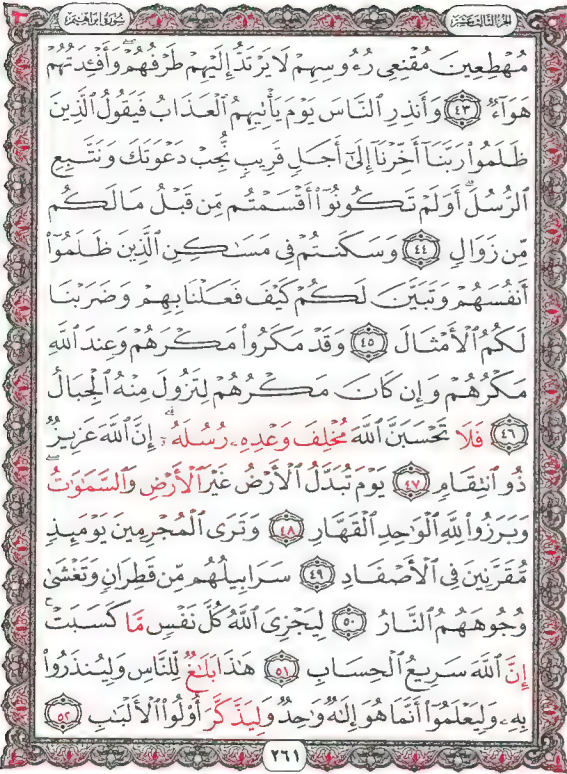 سورة إبراهيم
الجزء الثالث عشر
مُهْطِعِينَ مُقْنِعِى رُءُوسِهِمْ لَا يَرْتَدُّ إِلَيْهِمْ طَرْفُهُمْ ۖ وَأَفْـِٔدَتُهُمْ
هَوَآءٌ ٤٣ وَأَنذِرِ ٱلنَّاسَ يَوْمَ يَأْتِيهِمُ ٱلْعَذَابُ فَيَقُولُ ٱلَّذِينَ
ظَلَمُوا۟ رَبَّنَآ أَخِّرْنَآ إِلَىٰٓ أَجَلٍ قَرِيبٍ نُّجِبْ دَعْوَتَكَ وَنَتَّبِعِ
ٱلرُّسُلَ ۗ أَوَلَمْ تَكُونُوٓا۟ أَقْسَمْتُم مِّن قَبْلُ مَا لَكُم
مِّن زَوَالٍ ٤٤ وَسَكَنتُمْ فِى مَسَـٰكِنِ ٱلَّذِينَ ظَلَمُوٓا۟
أَنفُسَهُمْ وَتَبَيَّنَ لَكُمْ كَيْفَ فَعَلْنَا بِهِمْ وَضَرَبْنَا
لَكُمُ ٱلْأَمْثَالَ ٤٥ وَقَدْ مَكَرُوا۟ مَكْرَهُمْ وَعِندَ ٱللَّهِ
مَكْرُهُمْ وَإِن كَانَ مَكْرُهُمْ لِتَزُولَ مِنْهُ ٱلْجِبَالُ
٤٦ فَلَا تَحْسَبَنَّ ٱللَّهَ مُخْلِفَ وَعْدِهِۦ رُسُلَهُۥٓ ۗ إِنَّ ٱللَّهَ عَزِيزٌ
ذُو ٱنتِقَامٍ ٤٧ يَوْمَ تُبَدَّلُ ٱلْأَرْضُ غَيْرَ ٱلْأَرْضِ وَٱلسَّمَـٰوَٰتُ ۖ
وَبَرَزُوا۟ لِلَّهِ ٱلْوَٰحِدِ ٱلْقَهَّارِ ٤٨ وَتَرَى ٱلْمُجْرِمِينَ يَوْمَئِذٍ
مُّقَرَّنِينَ فِى ٱلْأَصْفَادِ ٤٩ سَرَابِيلُهُم مِّن قَطِرَانٍ وَتَغْشَىٰ
وُجُوهَهُمُ ٱلنَّارُ ٥٠ لِيَجْزِىَ ٱللَّهُ كُلَّ نَفْسٍ مَّا كَسَبَتْ ۚ
إِنَّ ٱللَّهَ سَرِيعُ ٱلْحِسَابِ ٥١ هَـٰذَا بَلَـٰغٌ لِّلنَّاسِ وَلِيُنذَرُوا۟
بِهِۦ وَلِيَعْلَمُوٓا۟ أَنَّمَا هُوَ إِلَـٰهٌ وَٰحِدٌ وَلِيَذَّكَّرَ أُو۟لُوا۟ ٱلْأَلْبَـٰبِ ٥٢
٢٦١